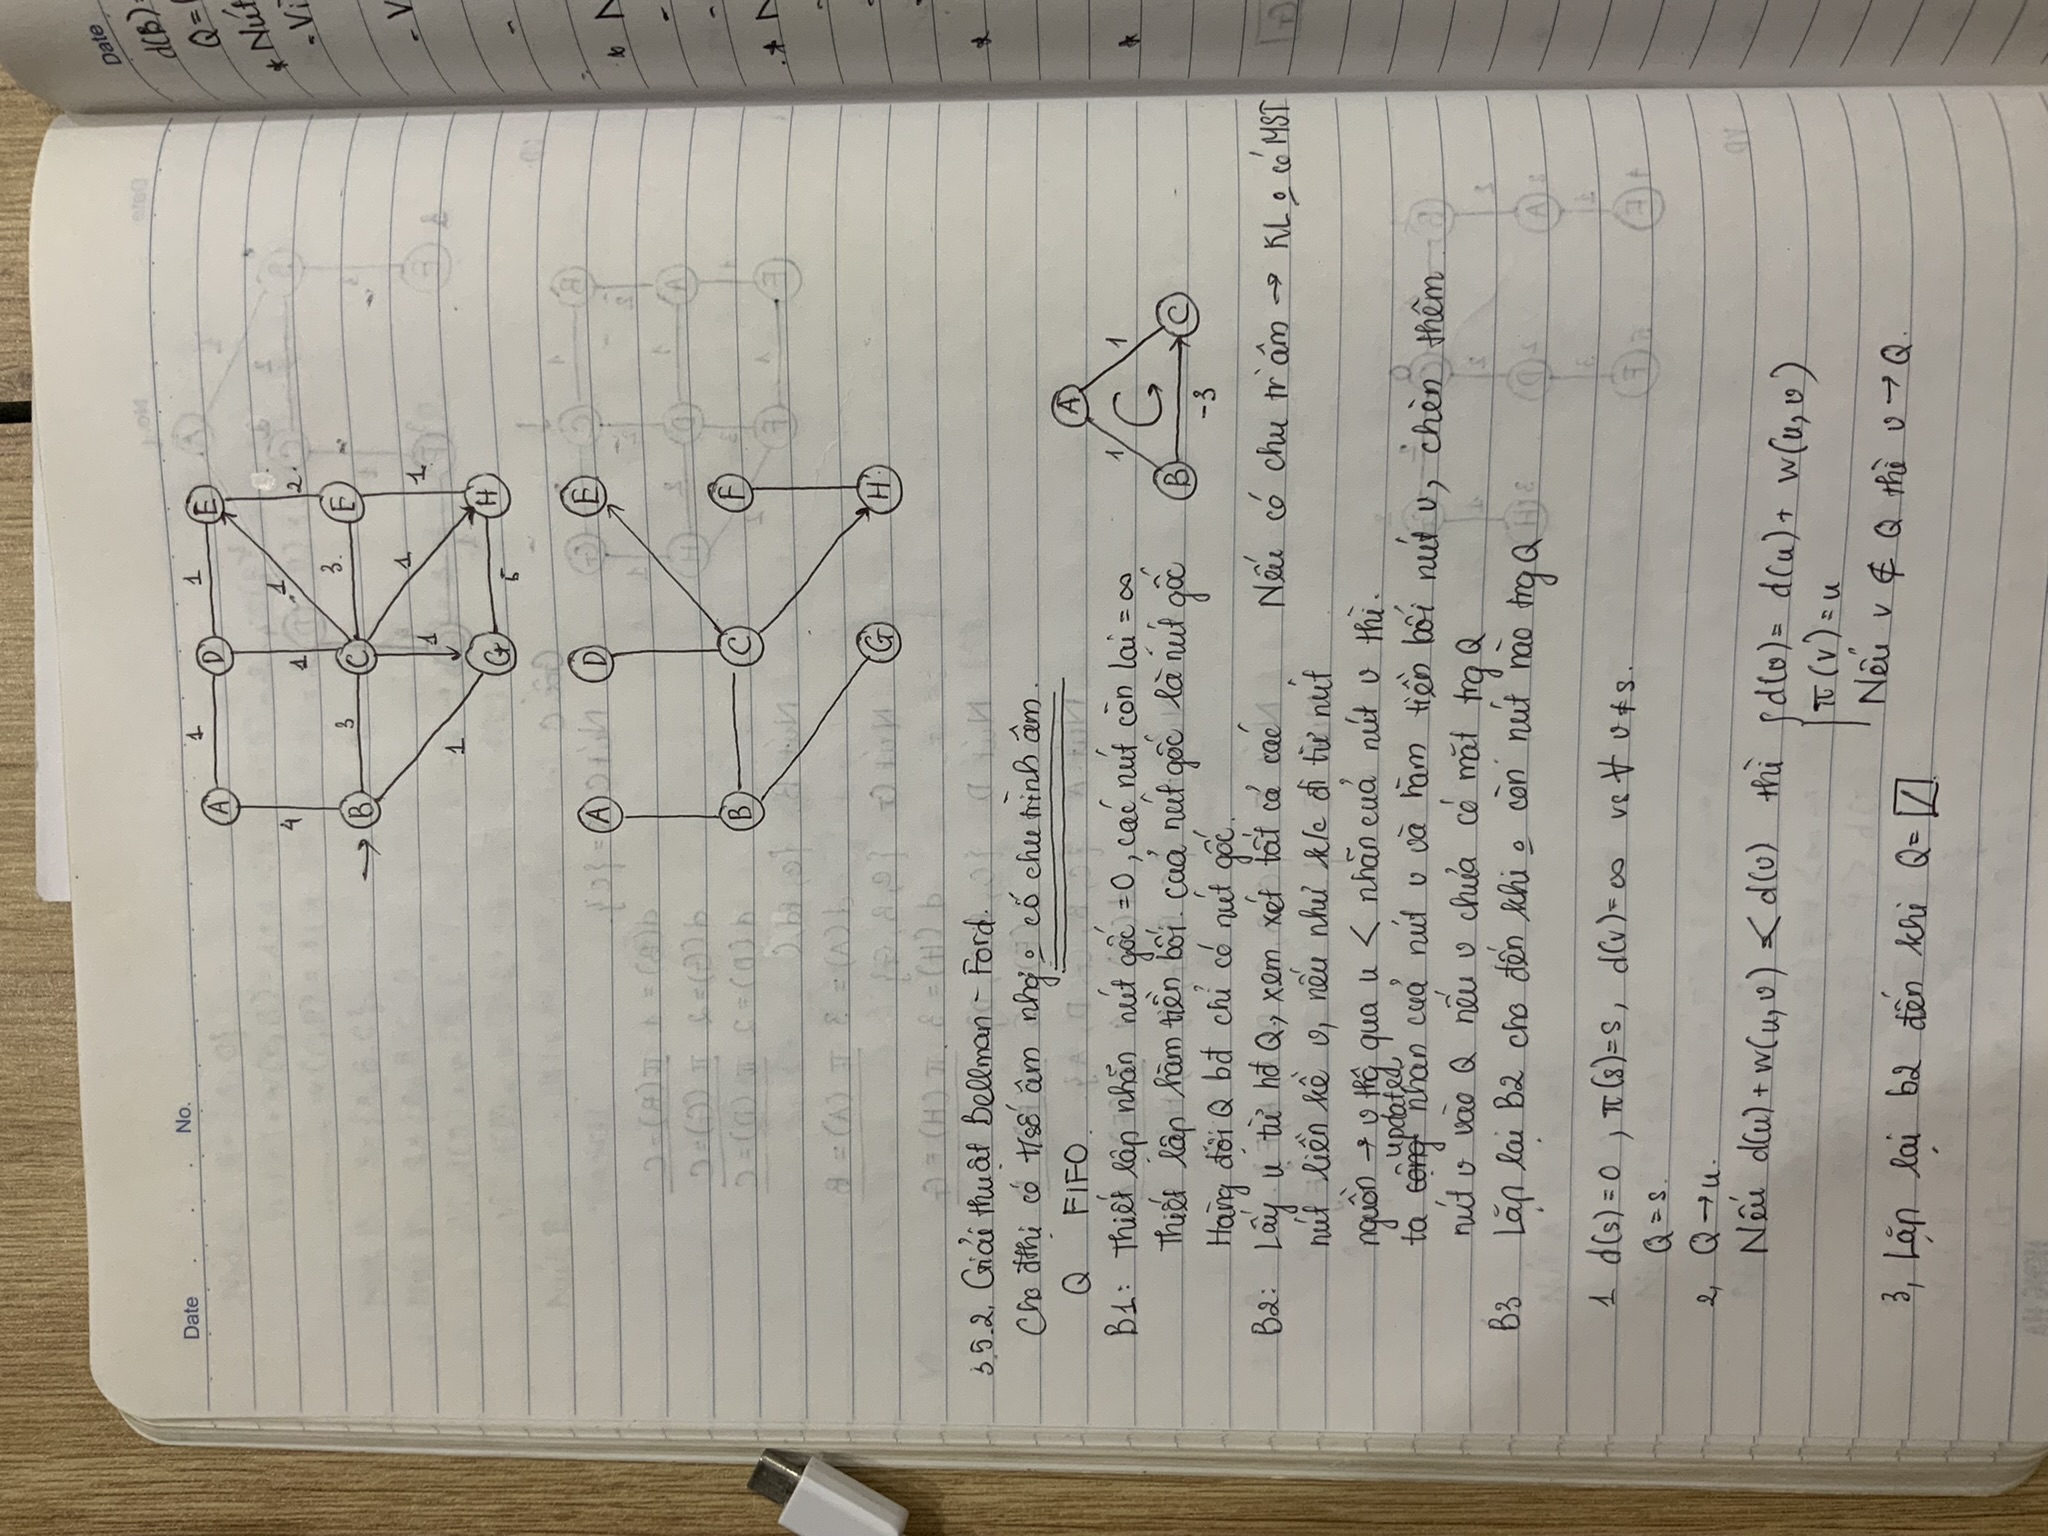 Date No.
A 1 D 1 E
4 1 1 2.
→ B 3 C 3. E
1 1 1 1
G 5 H
A D E
B C F
G H
3.5.2. Giải thuật Bellman - Ford.
Cho đthị có t/số âm nhg o có chu trình âm.
Q FIFO.
B1: Thiết lập nhãn nút gốc = 0, các nút còn lại = ∞
Thiết lập hàm tiền bối của nút gốc là nút gốc
Hàng đợi Q bđ chỉ có nút gốc.
A
1 1
B -3 C
B2: Lấy u từ hđ Q, xem xét tất cả các
nút liền kề v, nếu như k/c đi từ nút
nguồn → v thg qua u < nhãn của nút v thì.
ta update nhãn của nút v và hàm tiền bối nút v, chèn thêm
nút v vào Q nếu v chưa có mặt trg Q
Nếu có chu tr âm → KL o có MST
B3 Lặp lại B2 cho đến khi o còn nút nào trg Q
1 d(s) = 0, π(s) = s, d(v) = ∞ vs ∀ v ≠ s.
Q = s.
2, Q → u.
Nếu d(u) + w(u, v) < d(v) thì { d(v) = d(u) + w(u, v)
π(v) = u
Nếu v ∉ Q thì v → Q.
3, Lặp lại b2 đến khi Q =
Date
d(B) =
Q =
* Nút